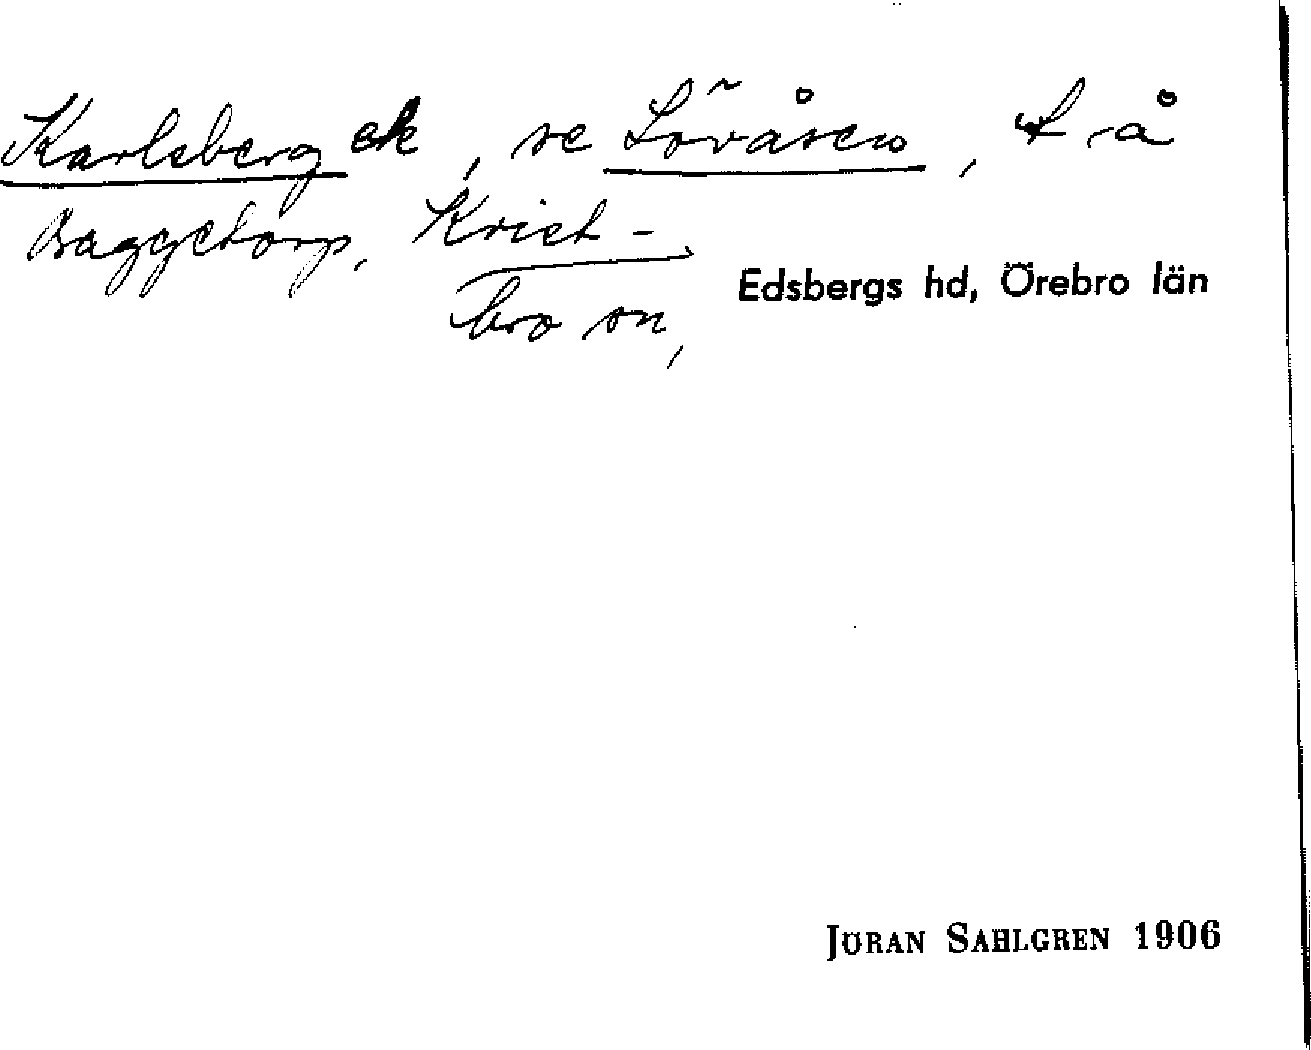 Karlsberg ek, se Lövåsen, t. å
Baggetorp, Krist-
bro sn, Edsbergs hd, Örebro län
JÖRAN SAHLGREN 1906